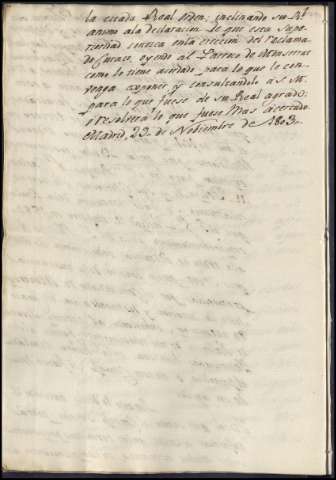 la citada Real orden, inclinando su Rl.
animo ala declaracion de que esta Supe-
rioridad entienda en la ereccion del reclama-
do Curato, oyendo al Patrono de Monserrat
como lo tiene acordado, para lo que le con-
venga exponer y consultandolo a S. M.
para lo que fuese de su Real agrado:
ó resolverá lo que fuese mas acertado
Madrid, 23 de Noviembre de 1803.